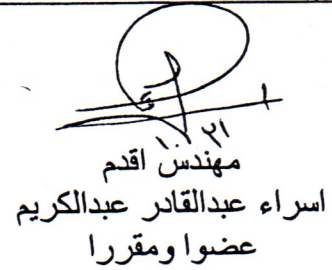 مهندس اقدم
اسراء عبدالقادر عبدالكريم
عضوا ومقررا